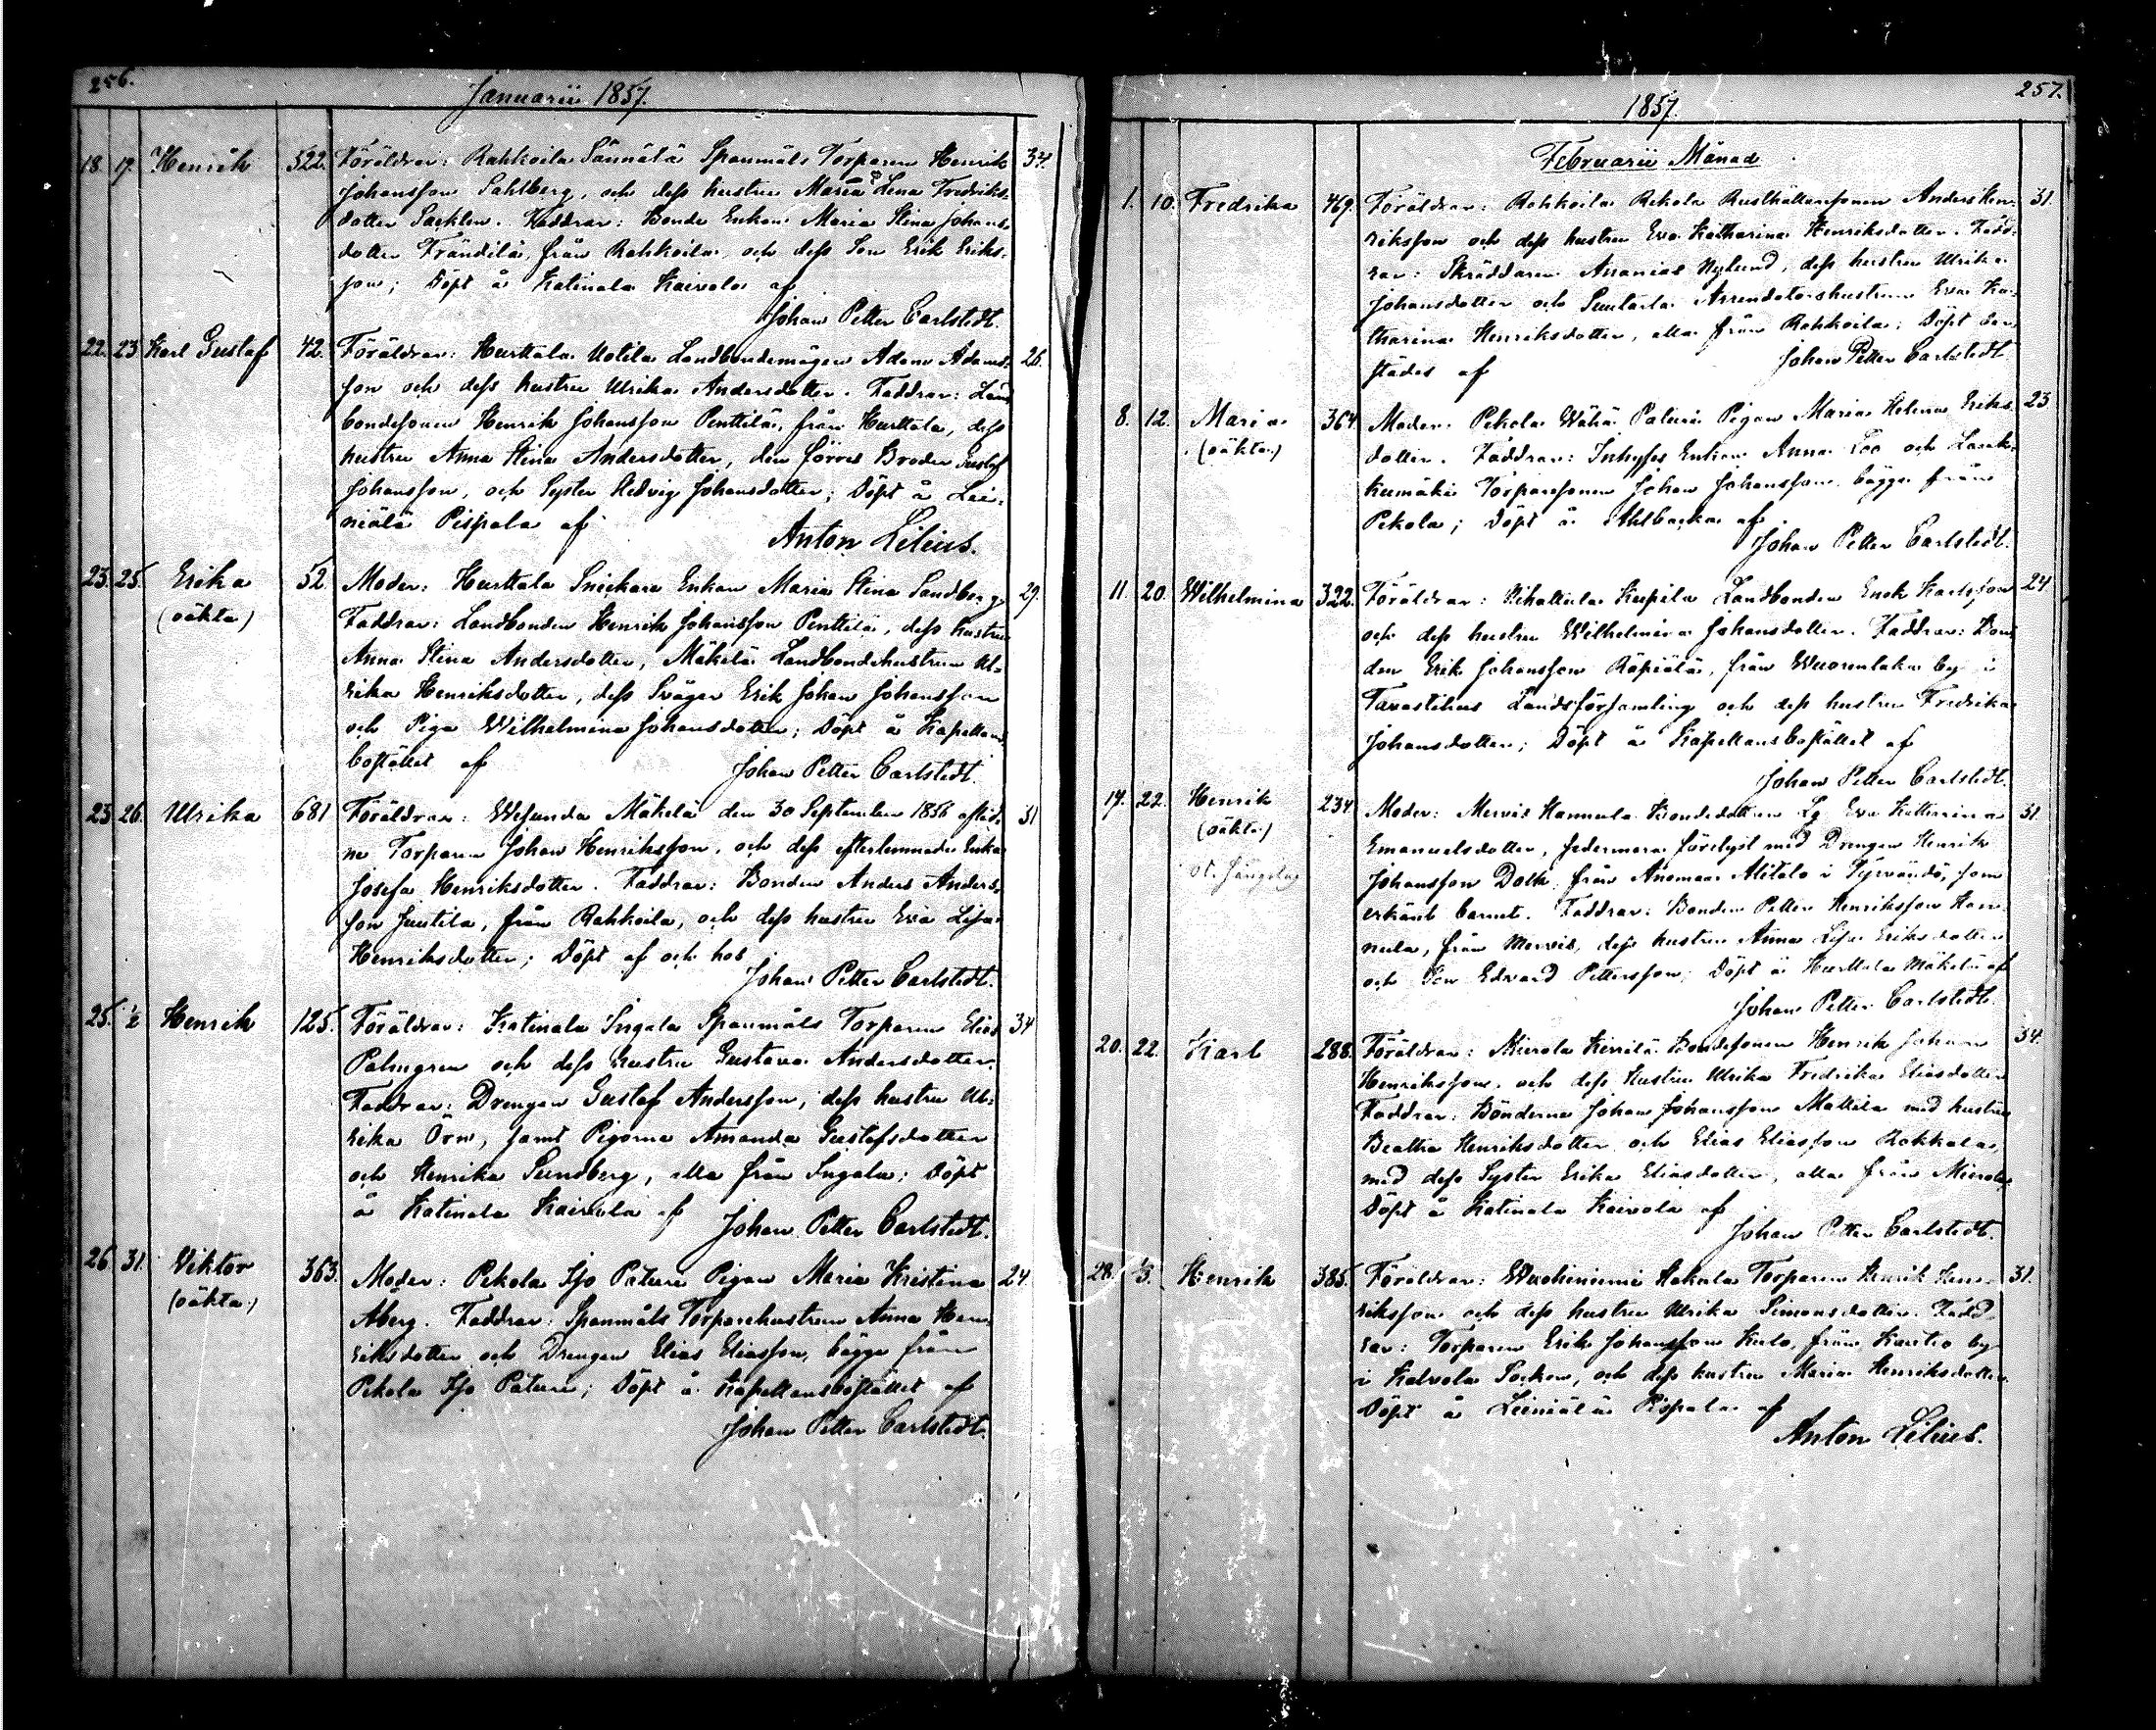 256.
Januarii 1857.
18. 19. Henrik 522. Föräldrar: Rahkoila Sännälä Spanmåls Torparen Henrik 34.
Johansson Sahlberg, och dess hustru Maria Lena Fredriks-
dotter Facklin. Faddrar: Bonde Enkan Maria Stina Johans-
dotter Frändilä, från Rahkoila, och dess Son Erik Eriks-
son; Döpt å Katinala Kaivola af
Johan Petter Carlstedt.
22. 23. Karl Gustaf 42. Föräldrar: Hurttala Uotila Landbondemågen Adam Adams- 26.
son och dess hustru Ulrika Andersdotter. Faddrar: Land
bondesonen Henrik Johansson Penttilä, från Hurttala, dess
hustru Anna Stina Andersdotter, den förres Broder Gustaf
Johansson, och Syster Hedvig Johansdotter; Döpt å Lei-
niälä Pispala af
Anton Lilius.
23. 25. Erika 52. Moder: Hurttala Snickare Enkan Maria Stina Sandberg. 29.
(oäkta) Faddrar: Landbonden Henrik Johansson Penttilä, dess hustru
Anna Stina Andersdotter, Mäkelä Landbondehustrun Ul-
rika Henriksdotter, dess Svåger Erik Johan Johansson
och Piga Wilhelmina Johansdotter; Döpt å Kapellans
bostället af
Johan Petter Carlstedt.
23. 26. Ulrika 681 Föräldrar: Wesunda Mäkelä den 30 September 1856 aflid- 31
ne Torparen Johan Henriksson, och dess efterlemnade Enka
Josefa Henriksdotter. Faddrar: Bonden Anders Anders-
son Juutila, från Rahkoila, och dess hustru Eva Lisa
Henriksdotter; Döpt af och hos
Johan Petter Carlstedt.
25. 1/2 Henrik 125. Föräldrar: Katinala Ingala Spanmåls Torparen Elias 34
Palmgren och dess hustru Gustava Andersdotter.
Faddrar: Drengen Gustaf Andersson, dess hustru Ul-
rika Örn, samt Pigorna Amanda Gustafsdotter
och Henrika Sundberg, alla från Ingala; Döpt
å Katinala Kaivola af
Johan Petter Carlstedt.
26. 31. Viktor 363. Moder: Pekola Iso Paturi Pigan Maria Kristina 24.
(oäkta) Åberg. Faddrar: Spanmåls Torparehustrun Anna Hen-
riksdotter och Drengen Elias Eliasson, bägge från
Pekola Iso Paturi; Döpt å Kapellansbostället af
Johan Petter Carlstedt.
257.
1857.
Februarii Månad
1. 10. Fredrika 469. Föräldrar: Rahkoila Rekola Rusthållaresonen Anders Hen- 31.
riksson och dess hustru Eva Katharina Henriksdotter. Fadd-
rar: Skräddaren Ananias Nylund, dess hustru Ulrika
Johansdotter och Arrendatorshustrun Eva Ka-
tharina Henriksdotter, alla från Rahkoila; Döpt der
städes af
Johan Petter Carlstedt
8. 12. Maria 364. Moder: Pekola Wähä Paturi Pigan Maria Helena Eriks- 23
(oäkta) dotter. Faddrar: Inhyses Enkan Anna och
Torparesonen Johan Johansson, bägge från
Pekola; Döpt å Ahlbacka af
Johan Petter Carlstedt.
11. 20. Wilhelmina 322. Föräldrar: Nihattula Kupila Landbonden Enok Karlsson 24.
och dess hustru Wilhelmina Johansdotter. Faddrar: Bon-
den Erik Johansson Räpiälä, från Wuorenlaka by i
Tavastehus Landsförsamling och dess hustru Fredrika
Johansdotter; Döpt å Kapellansbostället af
Johan Petter Carlstedt.
14. 22. Henrik 234 Moder: Mervis Hannula Bondedottren Eva Katharina 31.
(oäkta) Emanuelsdotter, sedermera förelyst med Drengen Henrik
Johansson Dolk från Anomaa Alitalo i Tyrvändö, som
erkänt barnet. Faddrar: Bonden Petter Henriksson Han-
nula, från Mervis, dess hustru Anna Lisa Eriksdotter
och Son Edvard Pettersson; Döpt å Hurttala Mäkelä af
Johan Petter Carlstedt.
20. 22. Karl 288. Föräldrar: Mierola Kirrilä Bondesonen Henrik Johan 34.
Henriksson, och dess hustru Ulrika Fredrika Eliasdotter
Faddrar: Bönderna Johan Johansson Mattila med hustru
Beatha Henriksdotter, och Elias Eliasson Rokkala,
med dess Syster Erika Eliasdotter, alla från Mierola;
Döpt å Katinala Kaivola af
Johan Petter Carlstedt.
28. 1/3. Henrik 385. Föräldrar: Wuohiniemi Hakala Torparen Henrik Hen- 31.
riksson och dess hustru Ulrika Simonsdotter. Fadd-
rar: Torparen Erik Johansson Kulo, från Kautio by
i Kalvola Socken, och dess hustru Maria Henriksdotter.
Döpt å Leiniälä Pispala af
Anton Lilius.